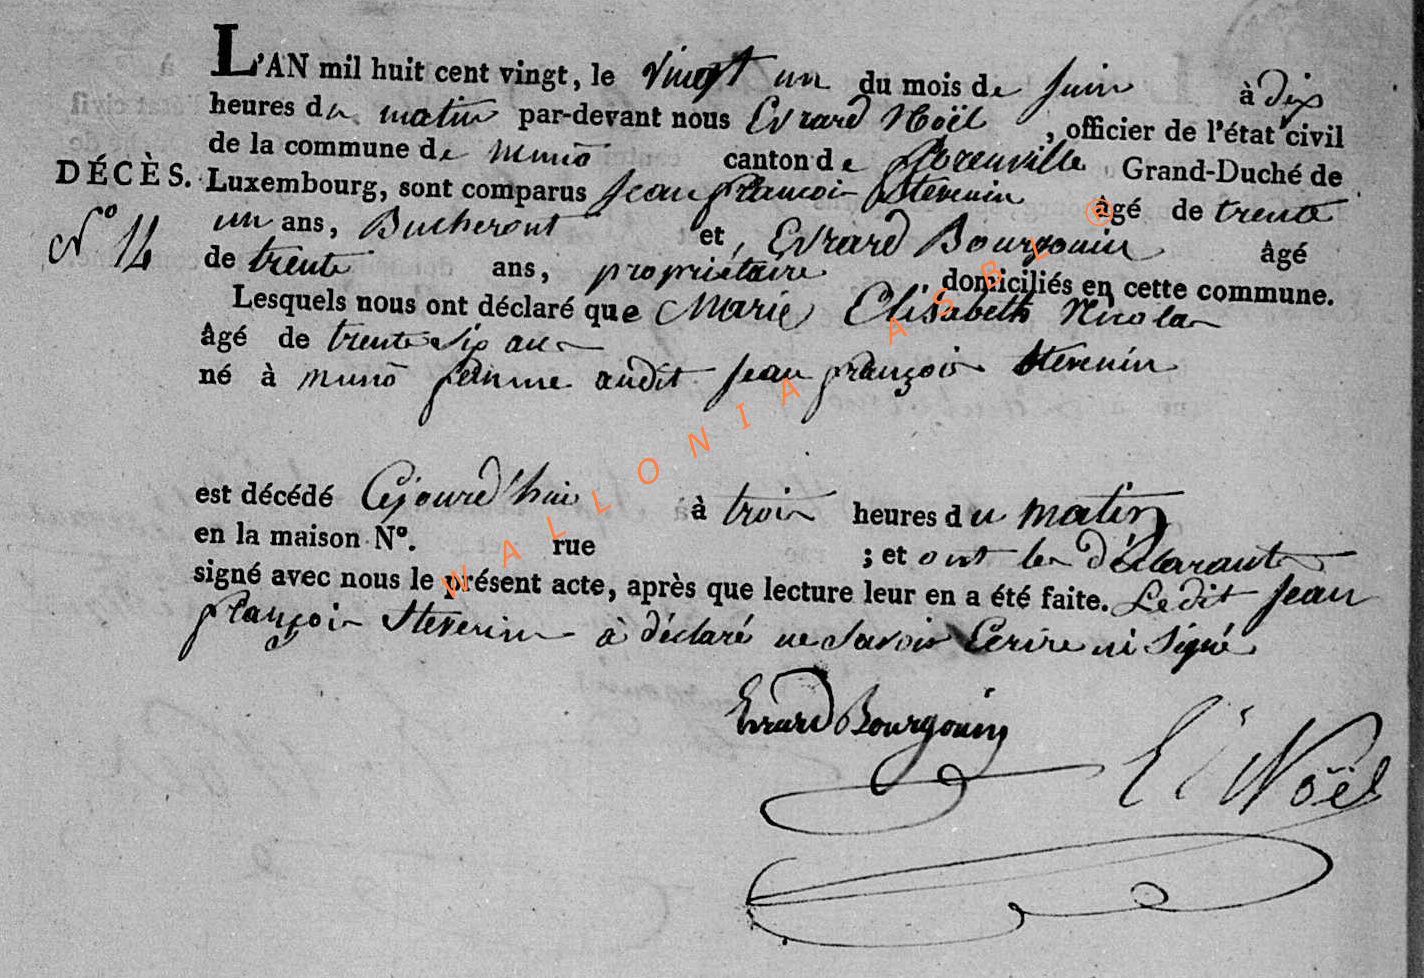 L'AN mil huit cent vingt, le vingt un du mois de juin à dix
heures du matin par-devant nous Evrard Noël, officier de l'état civil
de la commune de muno canton de florenville Grand-Duché de
DÉCÈS. Luxembourg, sont comparus Jean françois Stevenin âgé de trente
N° 14 un ans, Bucheront et, Evrard Bourgouin âgé
de trente ans, propriétaire domiciliés en cette commune.
Lesquels nous ont déclaré que Marie Elisabeth Nicolas
âgé de trente six ans
né à muno femme audit Jean françois Stevenin
est décédé Cejourd'hui à trois heures du matin
en la maison N°. rue ; et ont les déclarants
signé avec nous le présent acte, après que lecture leur en a été faite. Ledit Jean
françois Stevenin à déclaré ne savoir Ecrire ni signé
Evrard Bourgouin
E Noël
WALLONIA ASBL @